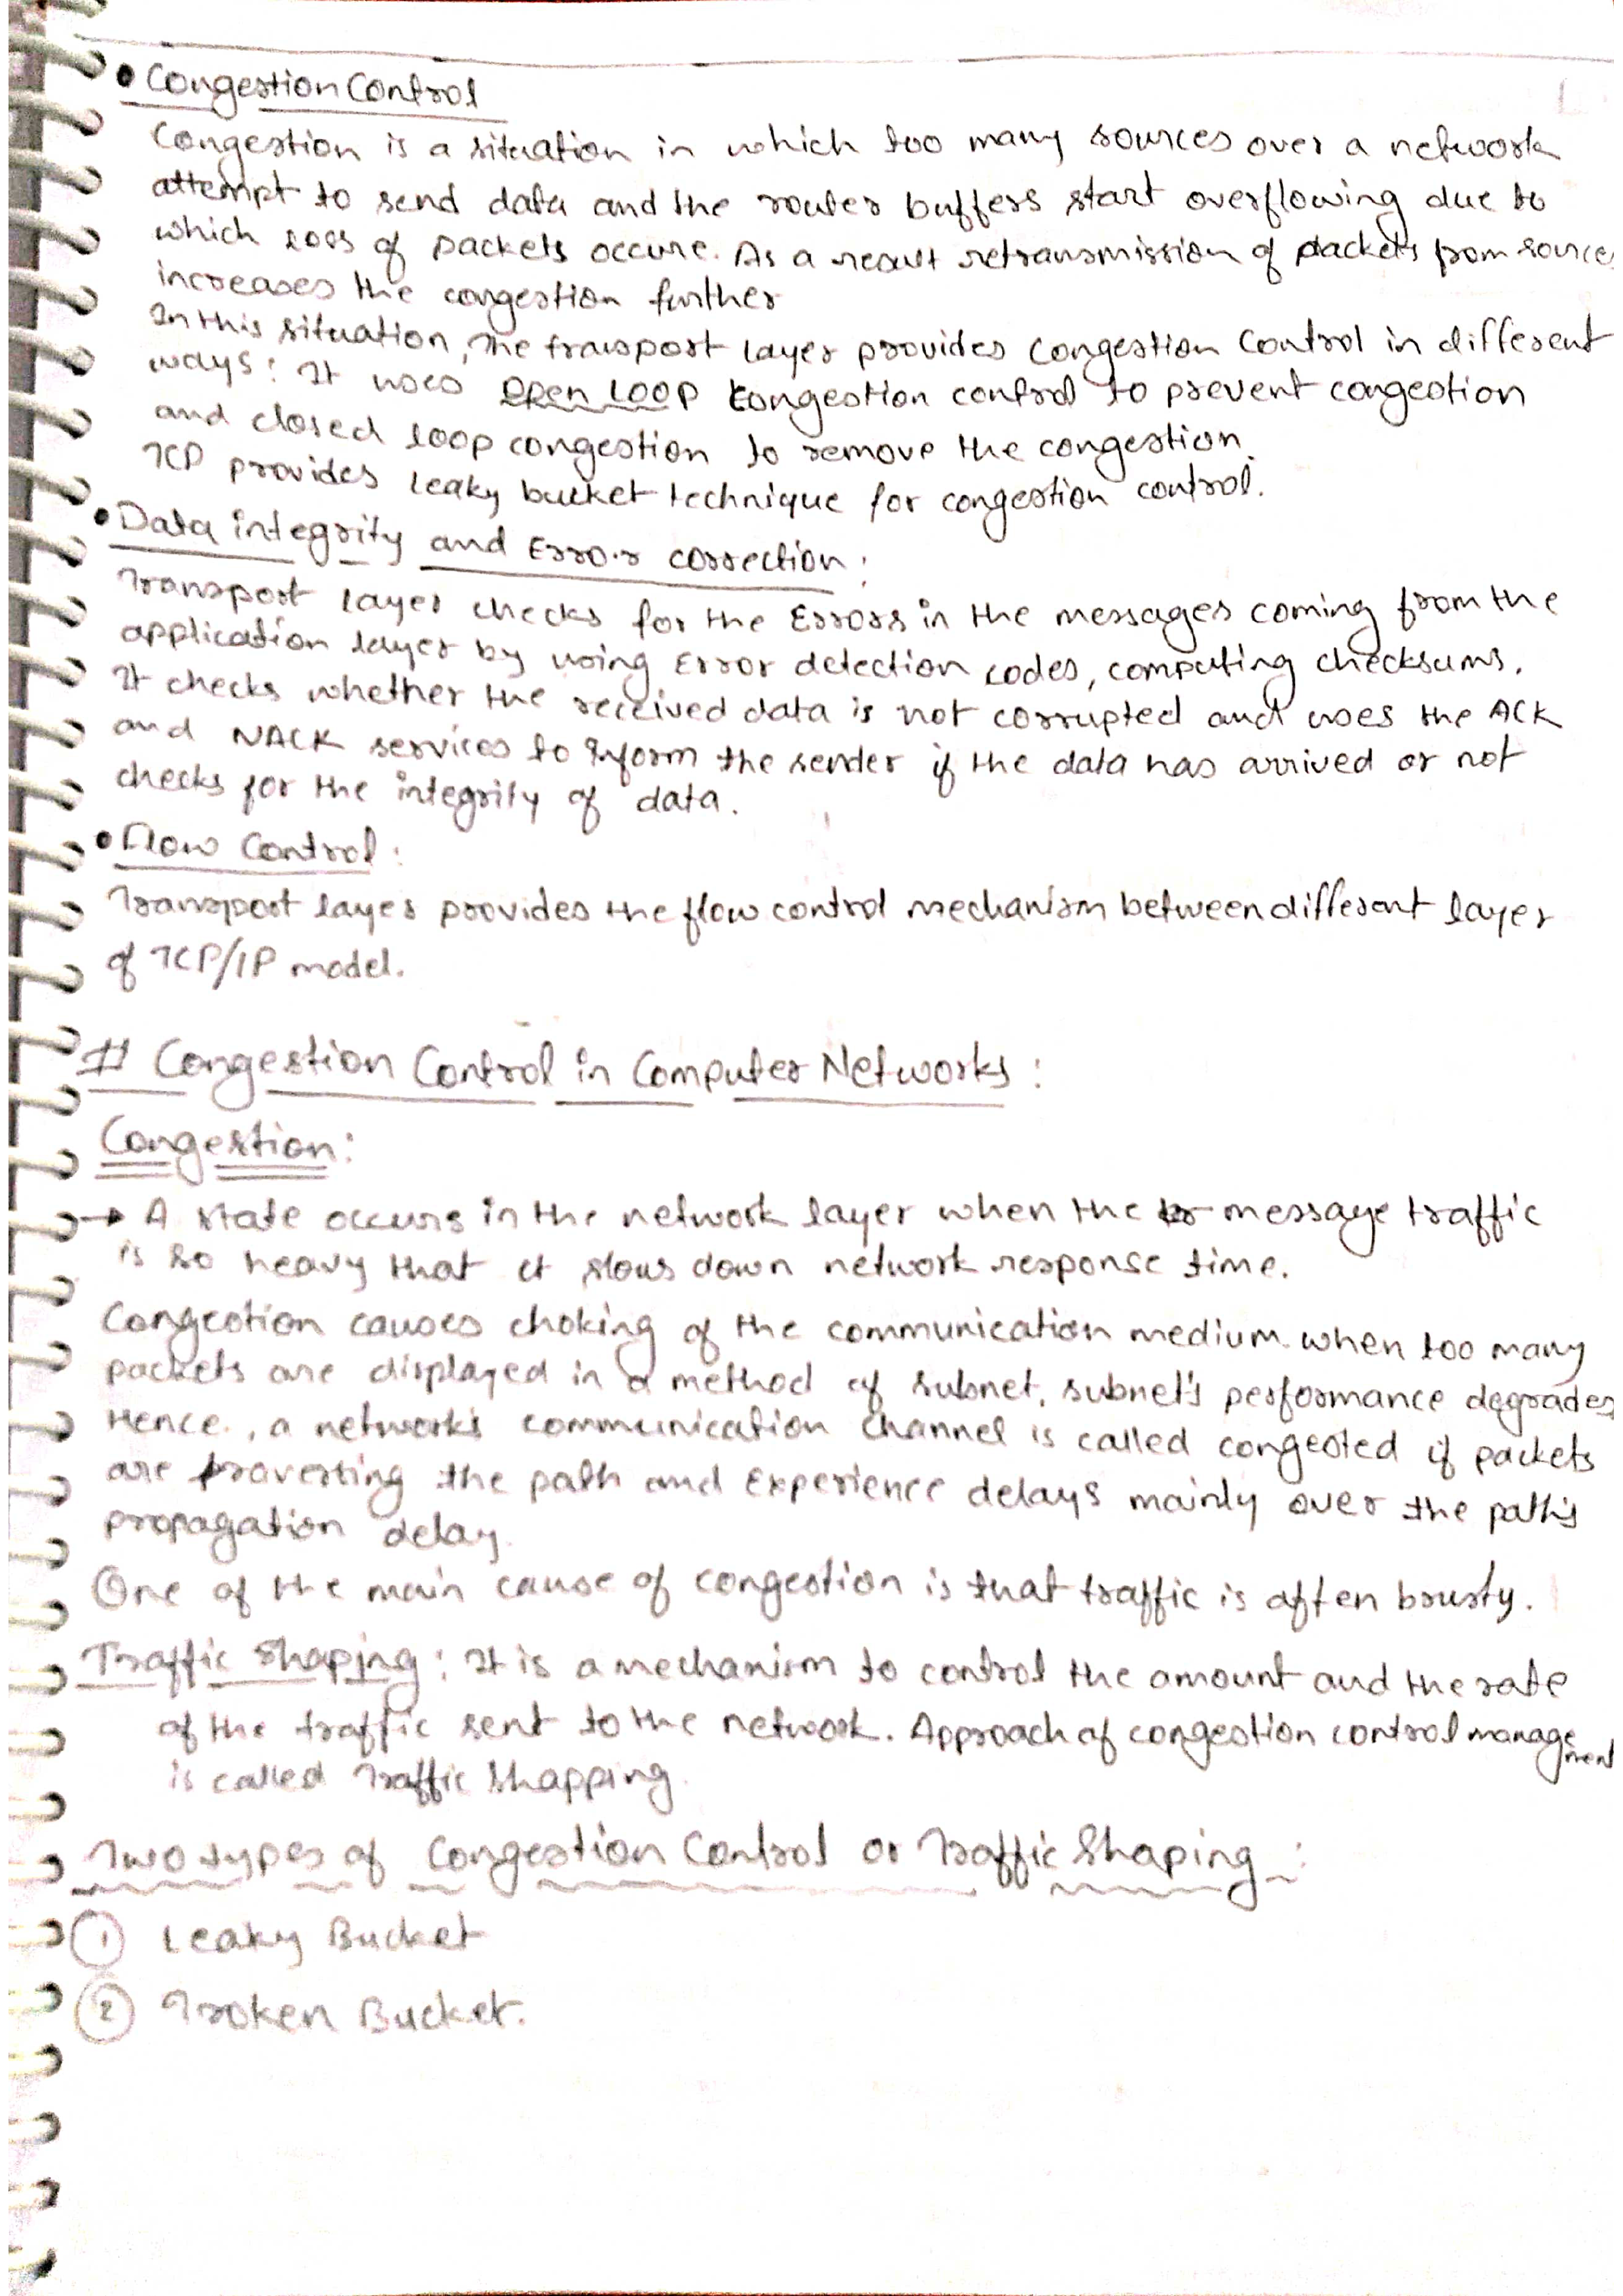 • Congestion Control
Congestion is a situation in which too many sources over a network
attempt to send data and the router buffers start overflowing due to
which loss of packets occure. As a result retransmission of packets from sources
increases the congestion further
In this situation, The transport layer provides Congestion Control in different
ways: It uses open loop congestion control to prevent congestion
and closed loop congestion to remove the congestion.
TCP provides leaky bucket technique for congestion control.
• Data integrity and Error correction:
Transport layer checks for the Errors in the messages coming from the
application layer by using Error detection codes, computing checksums.
It checks whether the received data is not corrupted and uses the ACK
and NACK services to inform the sender if the data has arrived or not
checks for the integrity of data.
• Flow Control:
Transport layer provides the flow control mechanism between different layer
of TCP/IP model.
# Congestion Control in Computer Networks:
Congestion:
→ A state occurs in the network layer when the message traffic
is so heavy that it slows down network response time.
Congestion causes choking of the communication medium. when too many
packets are displayed in a method of subnet, subnet's performance degrades
Hence, a network's communication channel is called congested if packets
are traversting the path and Experience delays mainly over the path's
propagation delay.
One of the main cause of congestion is that traffic is often brusty.
Traffic Shaping: It is a mechanism to control the amount and the rate
of the traffic sent to the network. Approach of congestion control management
is called Traffic Shapping.
Two types of Congestion Control or Traffic Shaping:
① Leaky Bucket
② Troken Bucket.